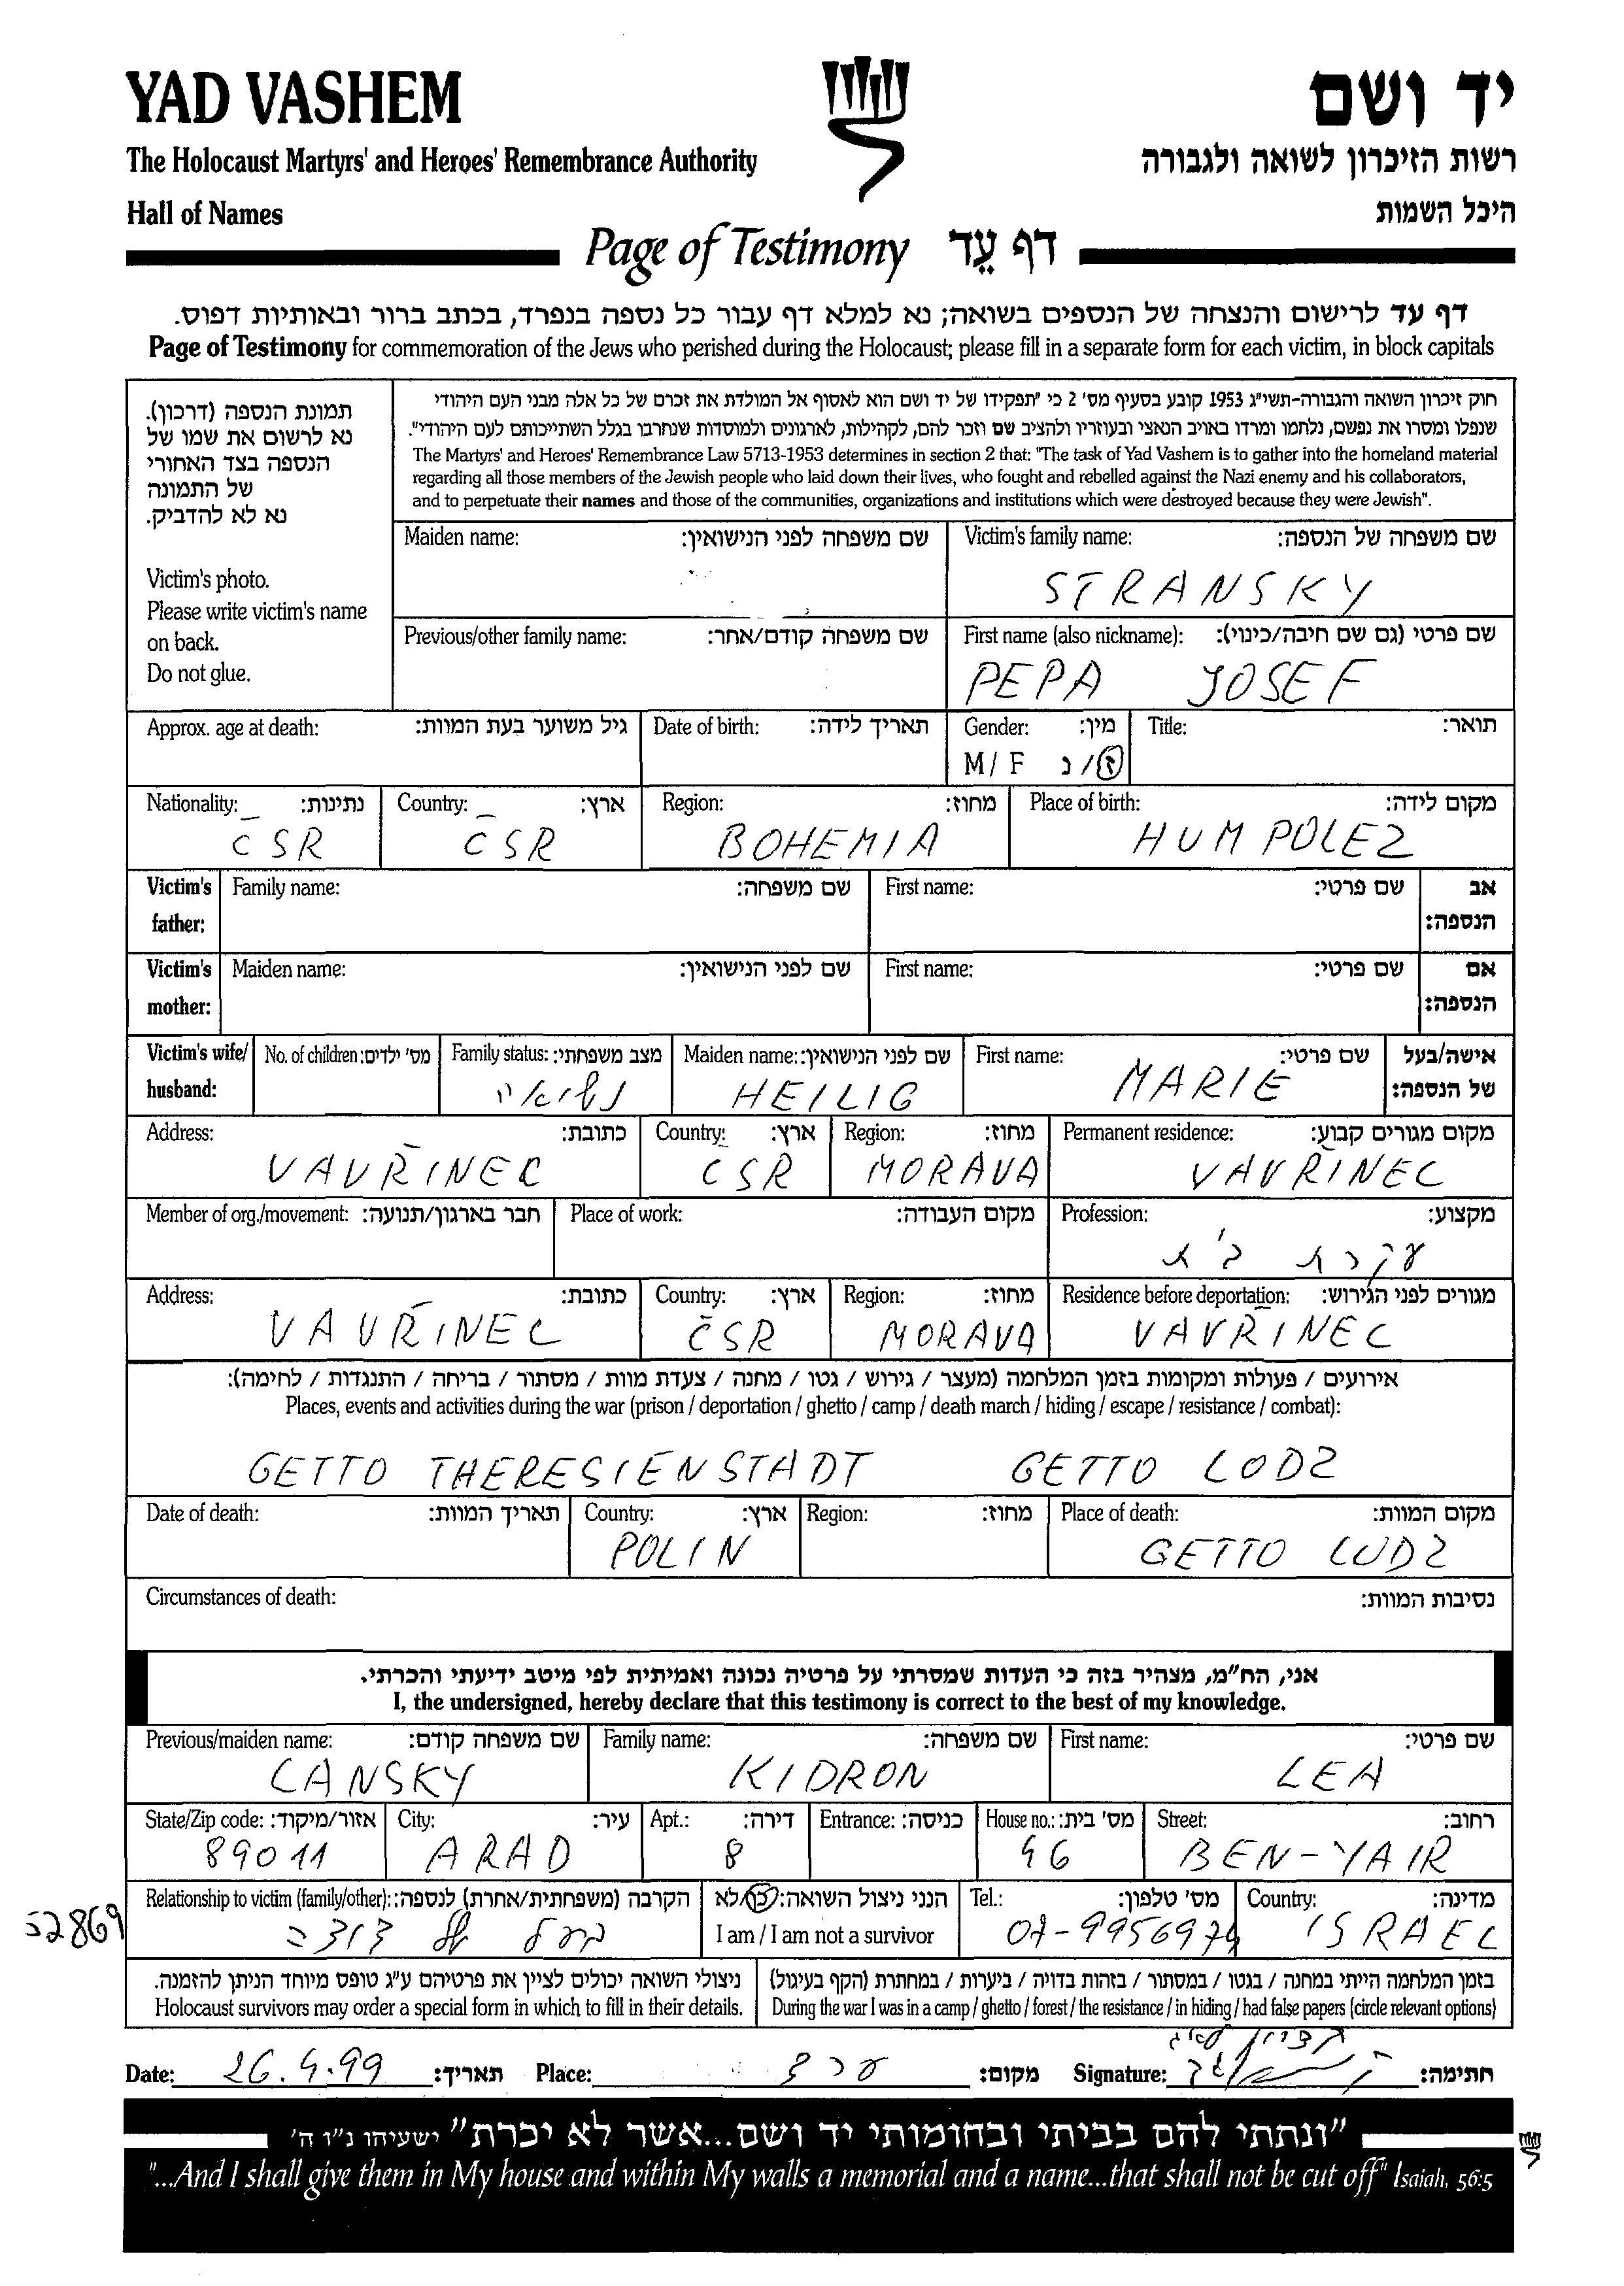 YAD VASHEM
יד ושם
The Holocaust Martyrs' and Heroes' Remembrance Authority
רשות הזיכרון לשואה ולגבורה
Hall of Names
היכל השמות
Page of Testimony דף עֵד
דף עד לרישום והנצחה של הנספים בשואה; נא למלא דף עבור כל נספה בנפרד, בכתב ברור ובאותיות דפוס.
Page of Testimony for commemoration of the Jews who perished during the Holocaust; please fill in a separate form for each victim, in block capitals
תמונת הנספה (דרכון).
נא לרשום את שמו של
הנספה בצד האחורי
של התמונה
נא לא להדביק.
Victim's photo.
Please write victim's name
on back.
Do not glue.
חוק זיכרון השואה והגבורה-תשי"ג 1953 קובע בסעיף מס' 2 כי "תפקידו של יד ושם הוא לאסוף אל המולדת את זכרם של כל אלה מבני העם היהודי
שנפלו ומסרו את נפשם, נלחמו ומרדו באויב הנאצי ובעוזריו ולהציב שם וזכר להם, לקהילות, לארגונים ולמוסדות שנחרבו בגלל השתייכותם לעם היהודי".
The Martyrs' and Heroes' Remembrance Law 5713-1953 determines in section 2 that: "The task of Yad Vashem is to gather into the homeland material
regarding all those members of the Jewish people who laid down their lives, who fought and rebelled against the Nazi enemy and his collaborators,
and to perpetuate their names and those of the communities, organizations and institutions which were destroyed because they were Jewish".
Maiden name: שם משפחה לפני הנישואין: Victim's family name: שם משפחה של הנספה:
STRANSKY
Previous/other family name: שם משפחה קודם/אחר: First name (also nickname): שם פרטי (גם שם חיבה/כינוי):
PEPA JOSEF
Approx. age at death: גיל משוער בעת המוות: Date of birth: תאריך לידה: Gender: מין: Title: תואר:
M / F ז / נ
Nationality: נתינות: Country: ארץ: Region: מחוז: Place of birth: מקום לידה:
ČSR ČSR BOHEMIA HUMPOLEZ
Victim's father: Family name: שם משפחה: First name: שם פרטי: אב הנספה:
Victim's mother: Maiden name: שם לפני הנישואין: First name: שם פרטי: אם הנספה:
Victim's wife/ husband: No. of children: מס' ילדים: Family status: מצב משפחתי: Maiden name: שם לפני הנישואין: First name: שם פרטי: אישה/בעל של הנספה:
HEILIG MARIE
Address: כתובת: Country: ארץ: Region: מחוז: Permanent residence: מקום מגורים קבוע:
VAVŘINEC ČSR MORAVA VAVŘINEC
Member of org./movement: חבר בארגון/תנועה: Place of work: מקום העבודה: Profession: מקצוע:
עקרת בית
Address: כתובת: Country: ארץ: Region: מחוז: Residence before deportation: מגורים לפני הגירוש:
VAVŘINEC ČSR MORAVA VAVŘINEC
אירועים / פעולות ומקומות בזמן המלחמה (מעצר / גירוש / גטו / מחנה / צעדת מוות / מסתור / בריחה / התנגדות / לחימה):
Places, events and activities during the war (prison / deportation / ghetto / camp / death march / hiding / escape / resistance / combat):
GETTO THERESIENSTADT GETTO LODZ
Date of death: תאריך המוות: Country: ארץ: Region: מחוז: Place of death: מקום המוות:
POLIN GETTO LODZ
Circumstances of death: נסיבות המוות:
אני, הח"מ, מצהיר בזה כי העדות שמסרתי על פרטיה נכונה ואמיתית לפי מיטב ידיעתי והכרתי.
I, the undersigned, hereby declare that this testimony is correct to the best of my knowledge.
Previous/maiden name: שם משפחה קודם: Family name: שם משפחה: First name: שם פרטי:
LANSKY KIDRON LEA
State/Zip code: אזור/מיקוד: City: עיר: Apt.: דירה: Entrance: כניסה: House no.: מס' בית: Street: רחוב:
89011 ARAD 8 46 BEN-YAIR
Relationship to victim (family/other): הקרבה (משפחתית/אחרת) לנספה: הנני ניצול השואה: כן/לא Tel.: מס' טלפון: Country: מדינה:
52869 של דודה I am / I am not a survivor 07-9956974 ISRAEL
ניצולי השואה יכולים לציין את פרטיהם ע"ג טופס מיוחד הניתן להזמנה. בזמן המלחמה הייתי במחנה / בגטו / במסתור / בזהות בדויה / ביערות / במחתרת (הקף בעיגול)
Holocaust survivors may order a special form in which to fill in their details. During the war I was in a camp / ghetto / forest / the resistance / in hiding / had false papers (circle relevant options)
Date: 26.4.99 תאריך: Place: ערד מקום: Signature: חתימה:
"ונתתי להם בביתי ובחומותי יד ושם...אשר לא יכרת" ישעיהו נ"ו ה'
"...And I shall give them in My house and within My walls a memorial and a name...that shall not be cut off" Isaiah, 56:5